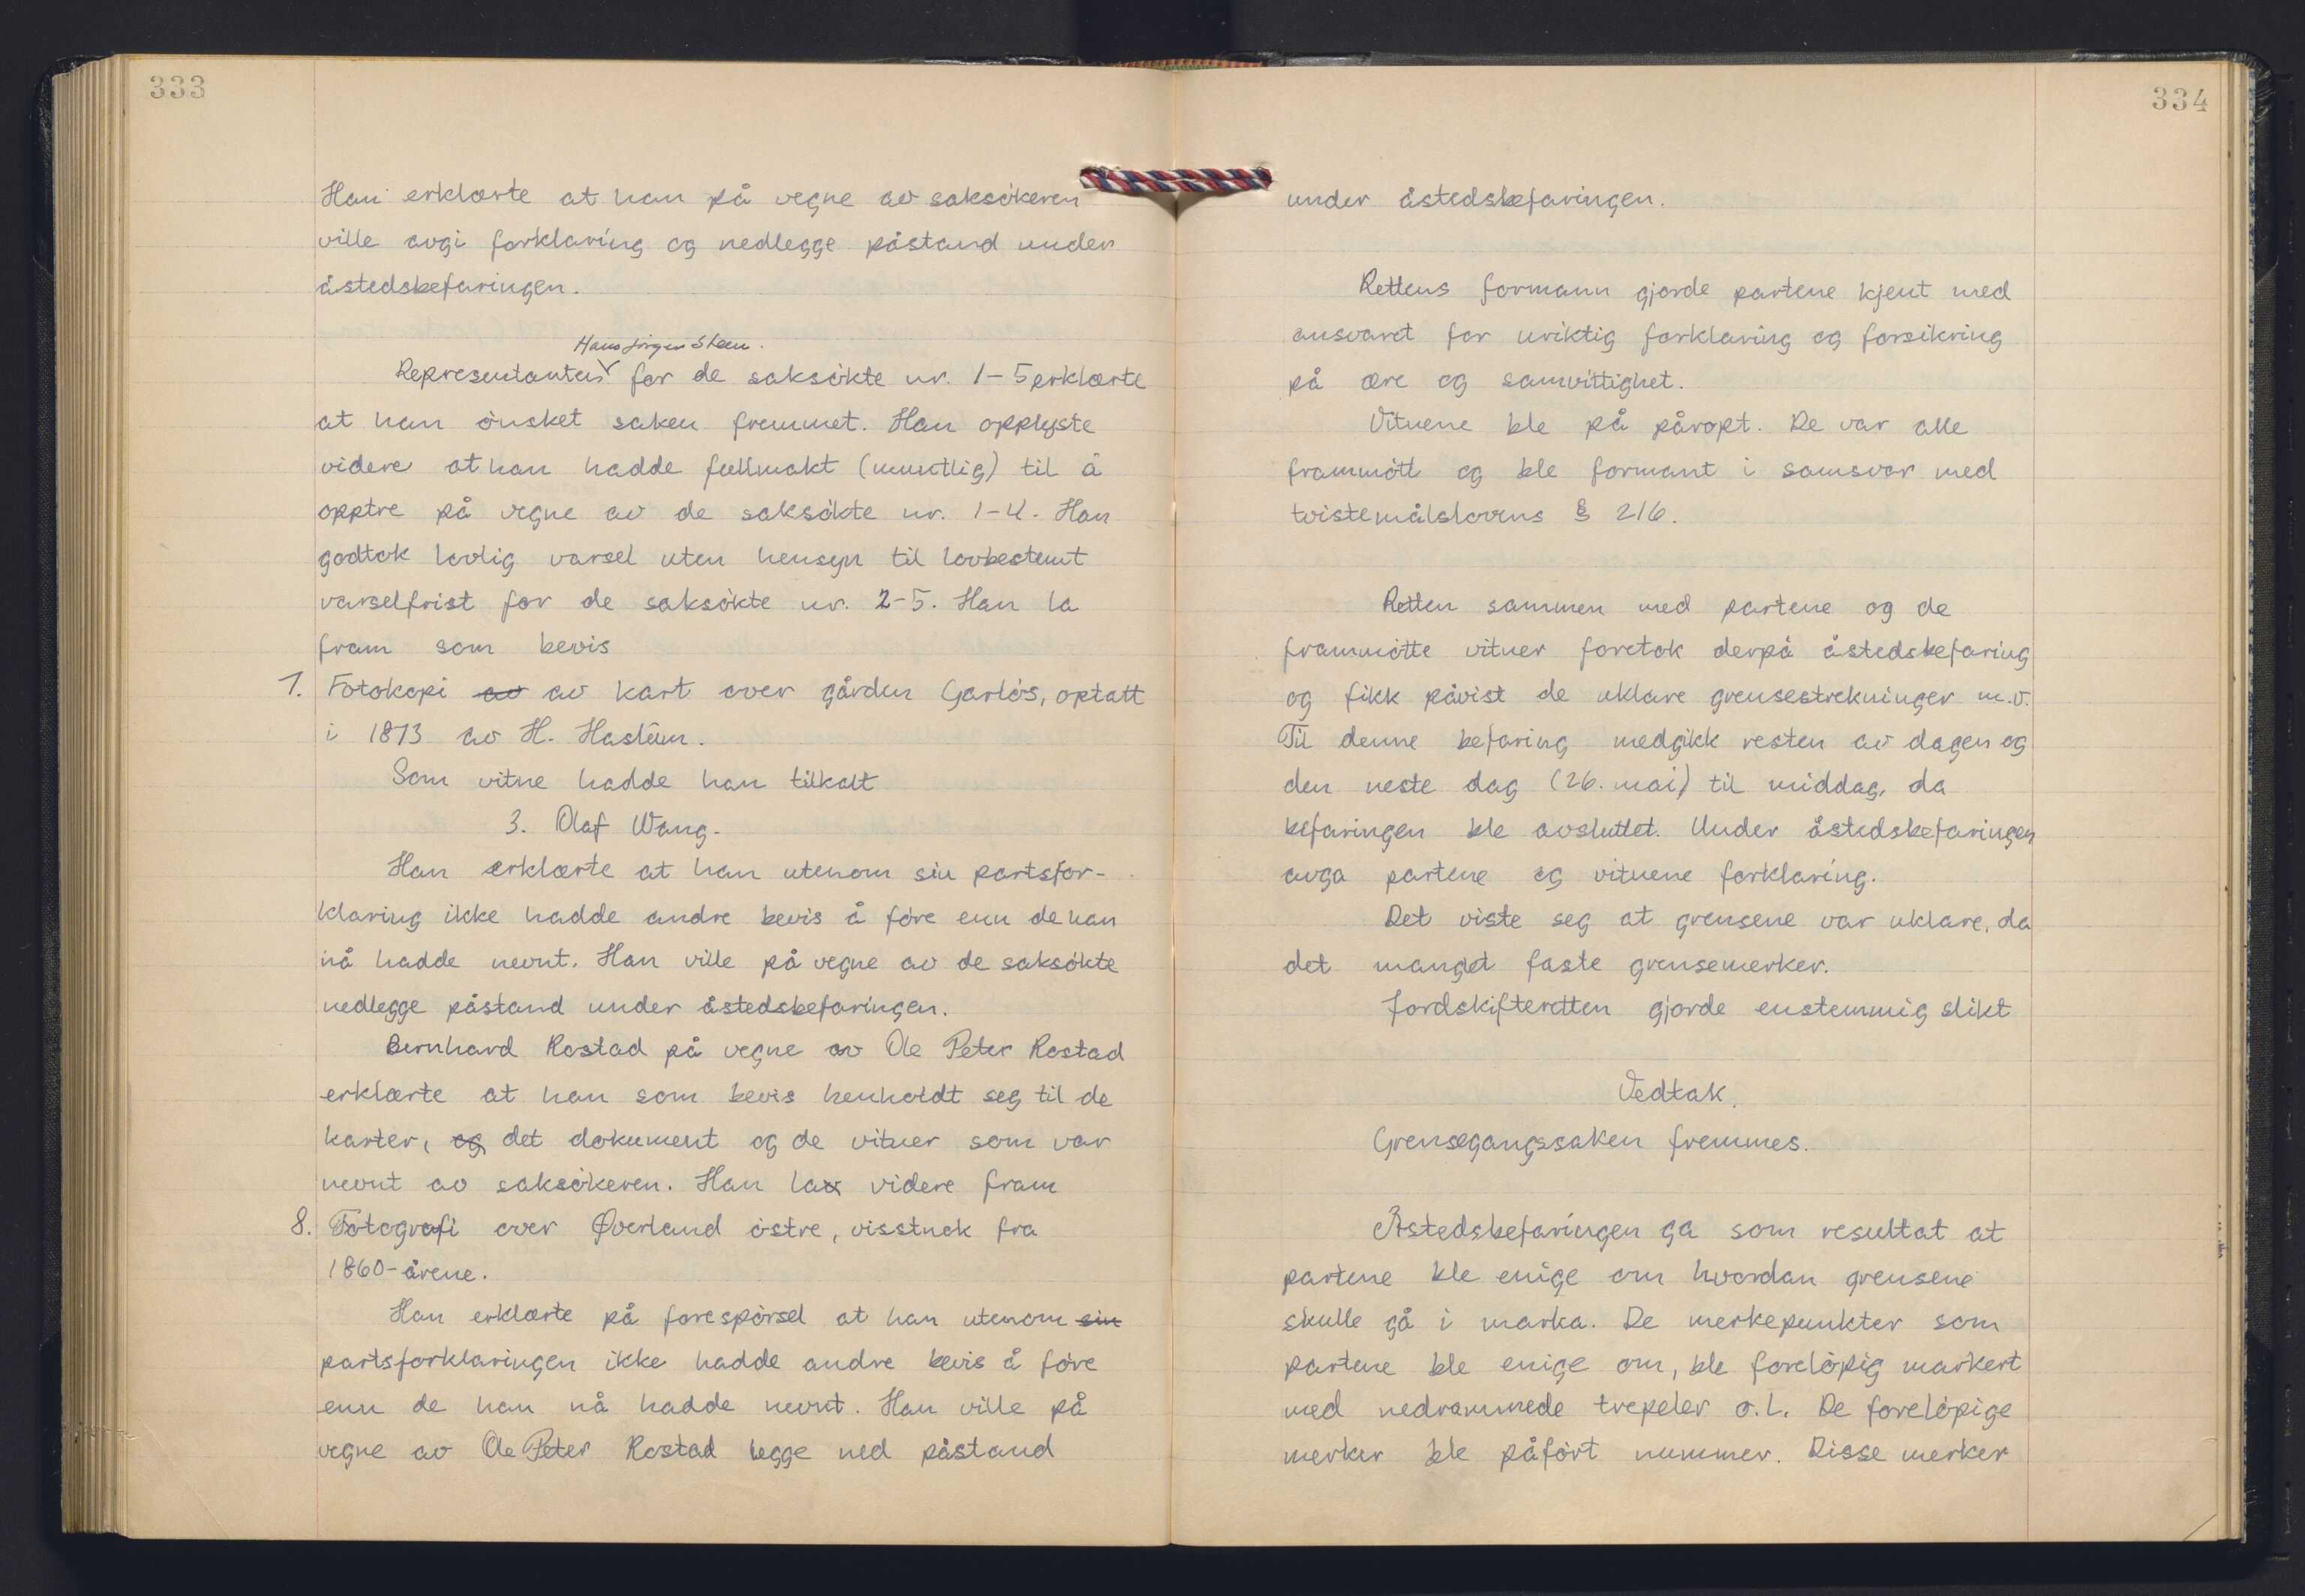 333
Han erklærte at han på vegne av saksökeren
ville avgi forklaring og nedlegge påstand under
åstedsbefaringen.
Hans Jörgen Steen.
Representanten for de saksökte nr. 1-5 erklærte
at han önsket saken fremmet. Han opplyste
videre at han hadde fullmakt (muntlig) til å
opptre på vegne av de saksökte nr. 1-4. Han
godtok lovlig varsel uten hensyn til lovbestemt
varselfrist for de saksökte nr. 2-5. Han la
fram som bevis
7. Fotokopi av av kart over gården Garlös, optatt
i 1873 av H. Haslum.
Som vitne hadde han tilkalt
3. Olaf Wang.
Han erklærte at han utenom sin partsfor-
klaring ikke hadde andre bevis å före enn de han
nå hadde nevnt. Han ville på vegne av de saksökte
nedlegge påstand under åstedsbefaringen.
Bernhard Rostad på vegne av Ole Peter Rostad
erklærte at han som bevis henholdt seg til de
karter, og det dokument og de vitner som var
nevnt av saksökeren. Han la videre fram
8. Fotografi over Øverland östre, visstnok fra
1860-årene.
Han erklærte på forespörsel at han utenom sin
partsforklaringen ikke hadde andre bevis å före
enn de han nå hadde nevnt. Han ville på
vegne av Ole Peter Rostad legge ned påstand
334
under åstedsbefaringen.
Rettens formann gjorde partene kjent med
ansvaret for uriktig forklaring og forsikring
på ære og samvittighet.
Vitnene ble på påropt. De var alle
frammött og ble formant i samsvar med
tvistemålslovens § 216.
Retten sammen med partene og de
frammötte vitner foretok derpå åstedsbefaring
og fikk påvist de uklare grensestrekninger m.v.
Til denne befaring medgikk resten av dagen og
den neste dag (26. mai) til middag, da
befaringen ble avsluttet. Under åstedsbefaringen
avga partene og vitnene forklaring.
Det viste seg at grensene var uklare, da
det manglet faste grensemerker.
Jordskifteretten gjorde enstemmig slikt
Vedtak.
Grensegangssaken fremmes.
Åstedsbefaringen ga som resultat at
partene ble enige om hvordan grensene
skulle gå i marka. De merkepunkter som
partene ble enige om, ble forelöpig markert
med nedrammede trepeler o.l. De forelöpige
merker ble påfört nummer. Disse merker